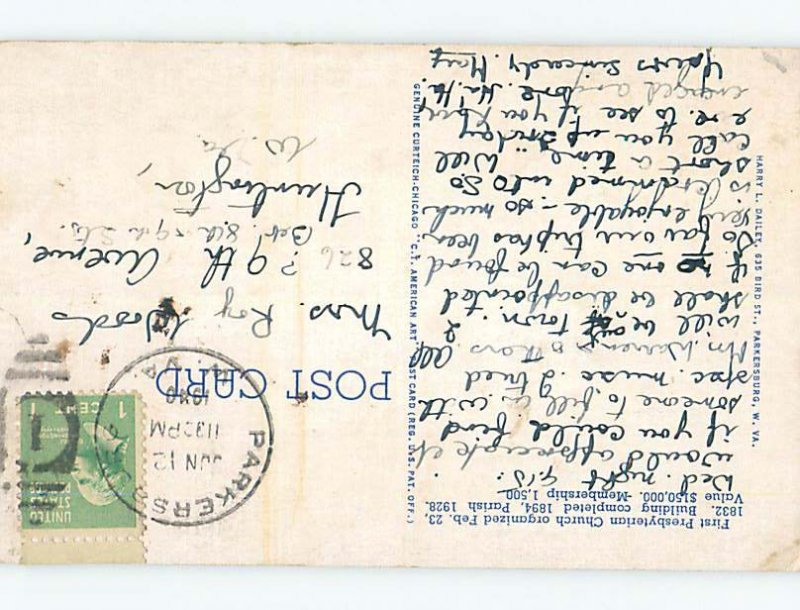 First Presbyterian Church organized Feb. 23,
1832. Building completed 1894, Parish 1928.
Value $150,000. Membership 1,500
Wed. night
would appreciate it
if you could find
someone to fill in with
sec. music. I tried
Mr. Warren & others all
will be out of town. I
shall be disappointed
if no one can be found
So far our trip has been
very enjoyable - so much
is crammed into so
short a time. Will
call you up Friday
e ve. to see if you
engaged anyone. Ha. Ha.
Yours Sincerely, Mary
POST CARD
Mrs. Roy Woods
826 9th Avenue,
Bet. 8th & 9th Sts.
Huntington,
W. Va
PARKERSBURG
JUN 12
1132PM
1940
W. VA.
UNITED
STATES
1 CENT 1
GENUINE CURTEICH-CHICAGO "C.T. AMERICAN ART" POST CARD (REG. U.S. PAT. OFF.)
HARRY L. DAILEY, 635 BIRD ST., PARKERSBURG, W. VA.